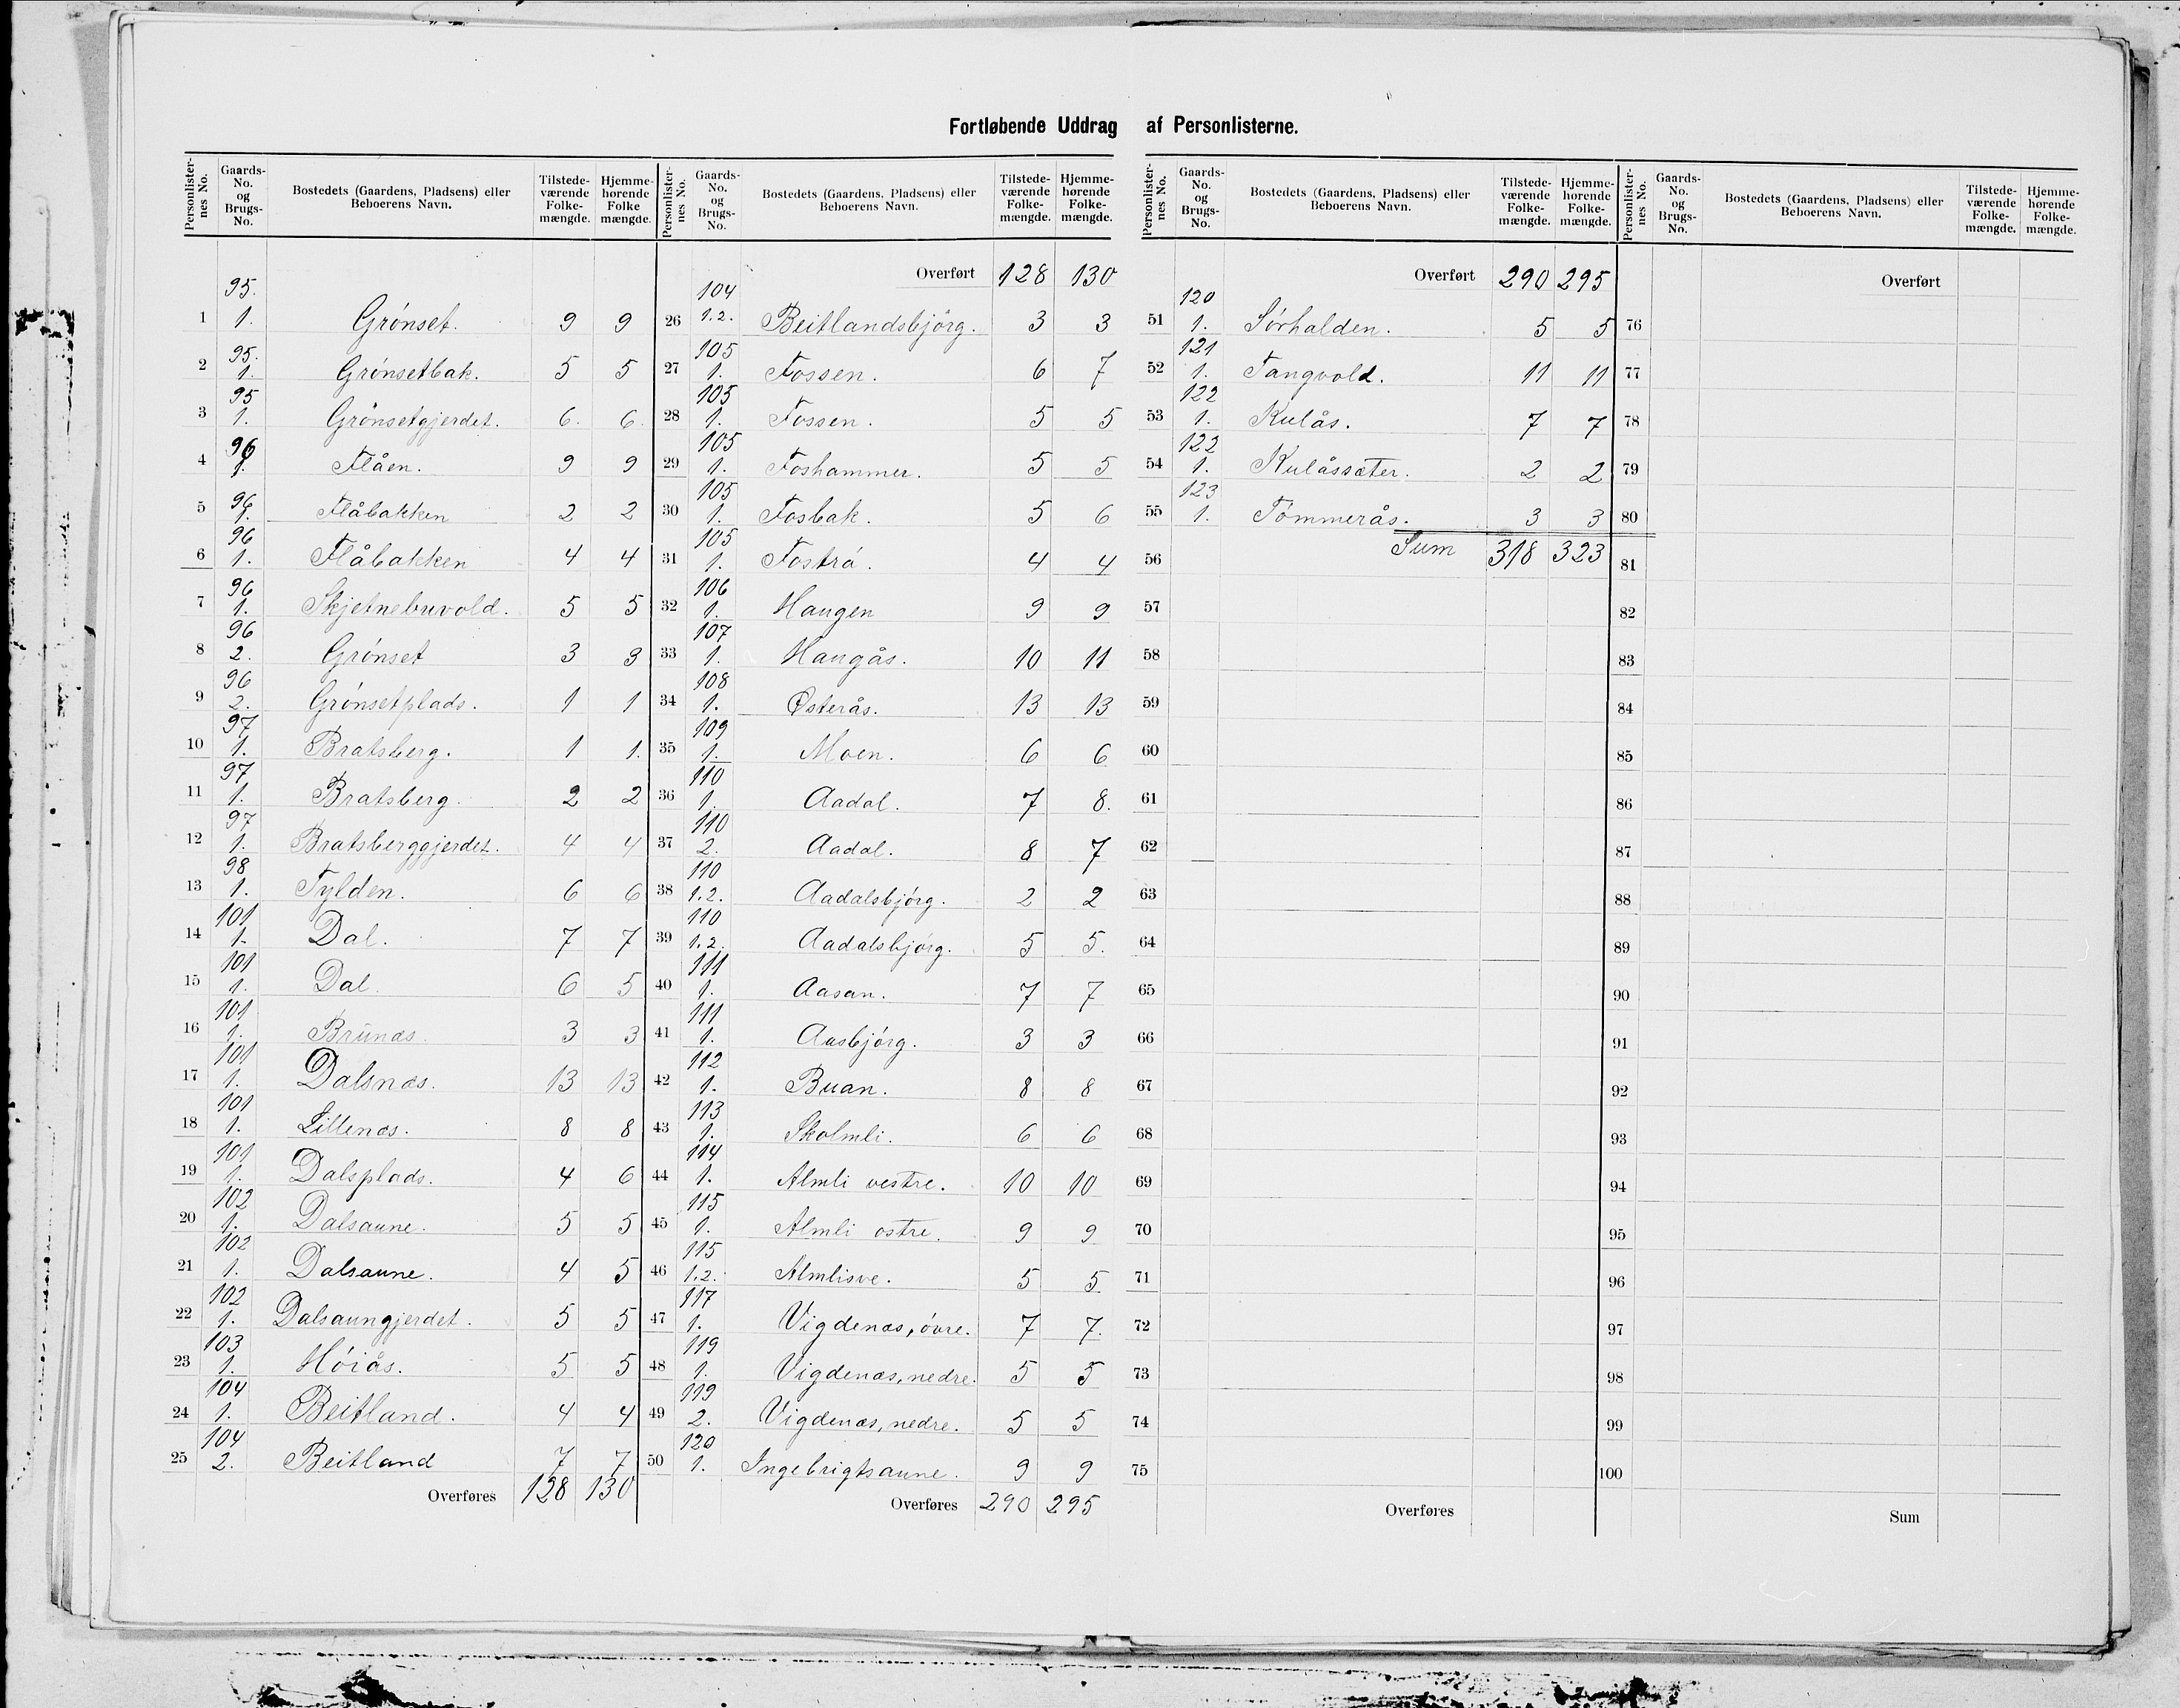 Fortløbende Uddrag af Personlisterne.
Personlister-nes No. Gaards-No. og Brugs-No. Bostedets (Gaardens, Pladsens) eller Beboerens Navn. Tilstede-værende Folke-mængde. Hjemme-hørende Folke mængde.
95. 1 1. Grönset. 9 9
95. 2 1. Grönsetbak. 5 5
95 3 1. Grönsetgjerdet. 6. 6.
96 4 1. Flåen. 9 9
96 5 1. Flåbakken 2 2
96 6 1. Flåbakken 4 4
96 7 1. Skjetnebuvold. 5 5
96 8 2. Grönset 3 3
96 9 2. Grönsetplads. 1 1
97 10 1. Bratsberg. 1 1.
97 11 1. Bratsberg. 2 2
97 12 1. Bratsberggjerdet. 4 4
98 13 1. Tylden. 6 6
101 14 1. Dal. 7 7
101 15 1. Dal. 6 5
101 16 1. Brünæs. 3 3
101 17 1. Dalsnæs. 13 13
101 18 1. Lillenæs. 8 8
101 19 1. Dalsplads. 4 6
102 20 1. Dalsaune. 5 5
102 21 1. Dalsaune. 4 5
102 22 1. Dalsaungjerdet. 5 5
103 23 1. Höiås. 5 5
104 24 1. Beitland. 4 4
104 25 2. Beitland 7 7
Overføres 128 130
Personlister-nes No. Gaards-No. og Brugs-No. Bostedets (Gaardens, Pladsens) eller Beboerens Navn. Tilstede-værende Folke-mængde. Hjemme-hørende Folke-mængde.
Overført 128 130
104 26 1.2. Beitlandsbjörg. 3 3
105 27 1. Fossen. 6 7
105 28 1. Fossen. 5 5
105 29 1. Foshammer. 5 5
105 30 1. Fosbak. 5 6
105 31 1. Foströ. 4 4
106 32 1. Haugen 9 9
107 33 1. Haugås. 10 11
108 34 1. Østerås. 13 13
109 35 1. Moen. 6 6
110 36 1. Aadal. 7 8.
110 37 2. Aadal. 8 7
110 38 1.2. Aadalsbjörg. 2 2
110 39 1.2. Aadalsbjörg. 5 5.
111 40 1. Aasan. 7 7
111 41 1. Aasbjörg. 3 3
112 42 1. Buan. 8 8
113 43 1. Skolmli. 6 6
114 44 1. Almli vestre. 10 10
115 45 1. Almli østre. 9 9
115 46 1.2. Almlisve. 5 5
117 47 1. Vigdenæs, övre. 7 7.
119 48 1. Vigdenæs, nedre. 5 5
119 49 2. Vigdenæs, nedre. 5 5
120 50 1. Ingebrigtsaune. 9 9
Overføres 290 295
Personlister-nes No. Gaards-No. og Brugs-No. Bostedets (Gaardens, Pladsens) eller Beboerens Navn. Tilstede-værende Folke-mængde. Hjemme-hørende Folke-mængde.
Overført 290 295
120 51 1. Sörhalden. 5 5
121 52 1. Tangvold. 11 11
122 53 1. Kulås. 7 7
122 54 1. Kulåssæter. 2 2
123 55 1. Tömmerås. 3 3
56 Sum 318 323
57
58
59
60
61
62
63
64
65
66
67
68
69
70
71
72
73
74
75
Overføres
Personlister-nes No. Gaards-No. og Brugs-No. Bostedets (Gaardens, Pladsens) eller Beboerens Navn. Tilstede-værende Folke-mængde. Hjemme-hørende Folke-mængde.
Overført
76
77
78
79
80
81
82
83
84
85
86
87
88
89
90
91
92
93
94
95
96
97
98
99
100
Sum